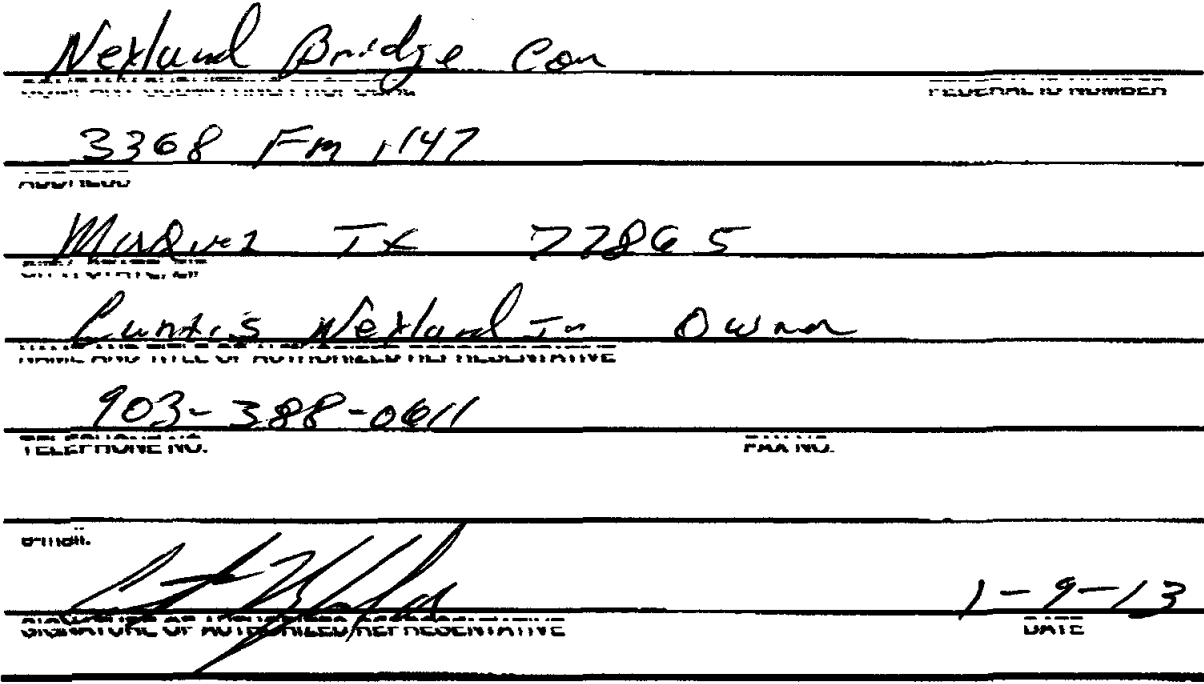 Nexland Bridge Con
COMPANY SUBMITTING PROPOSAL FEDERAL ID NUMBER
3368 Fm 1147
ADDRESS
Marquez Tx 77865
CITY, STATE, ZIP
Curtis Nexland Owner
NAME AND TITLE OF AUTHORIZED REPRESENTATIVE
903-388-0611
TELEPHONE NO. FAX NO.
e-mail.
SIGNATURE OF AUTHORIZED REPRESENTATIVE DATE
1-9-13